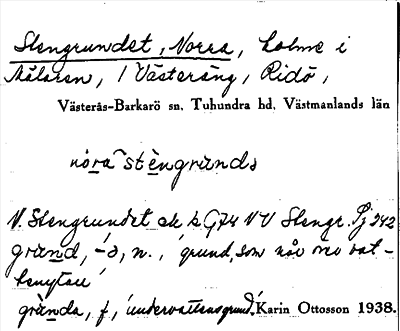 Stengrundet, Norra, holme i
Mälaren, / Västeräng, Ridö,
Västerås-Barkarö sn, Tuhundra hd, Västmanlands län
nóra stèngrùndə
N. Stengrundet ek k G74 NV Stengr. Pj 242
grùnd, -ə, n., 'grund, som når
tenytan'
grùnda, f., 'undervattensgrund'. Karin Ottosson 1938.